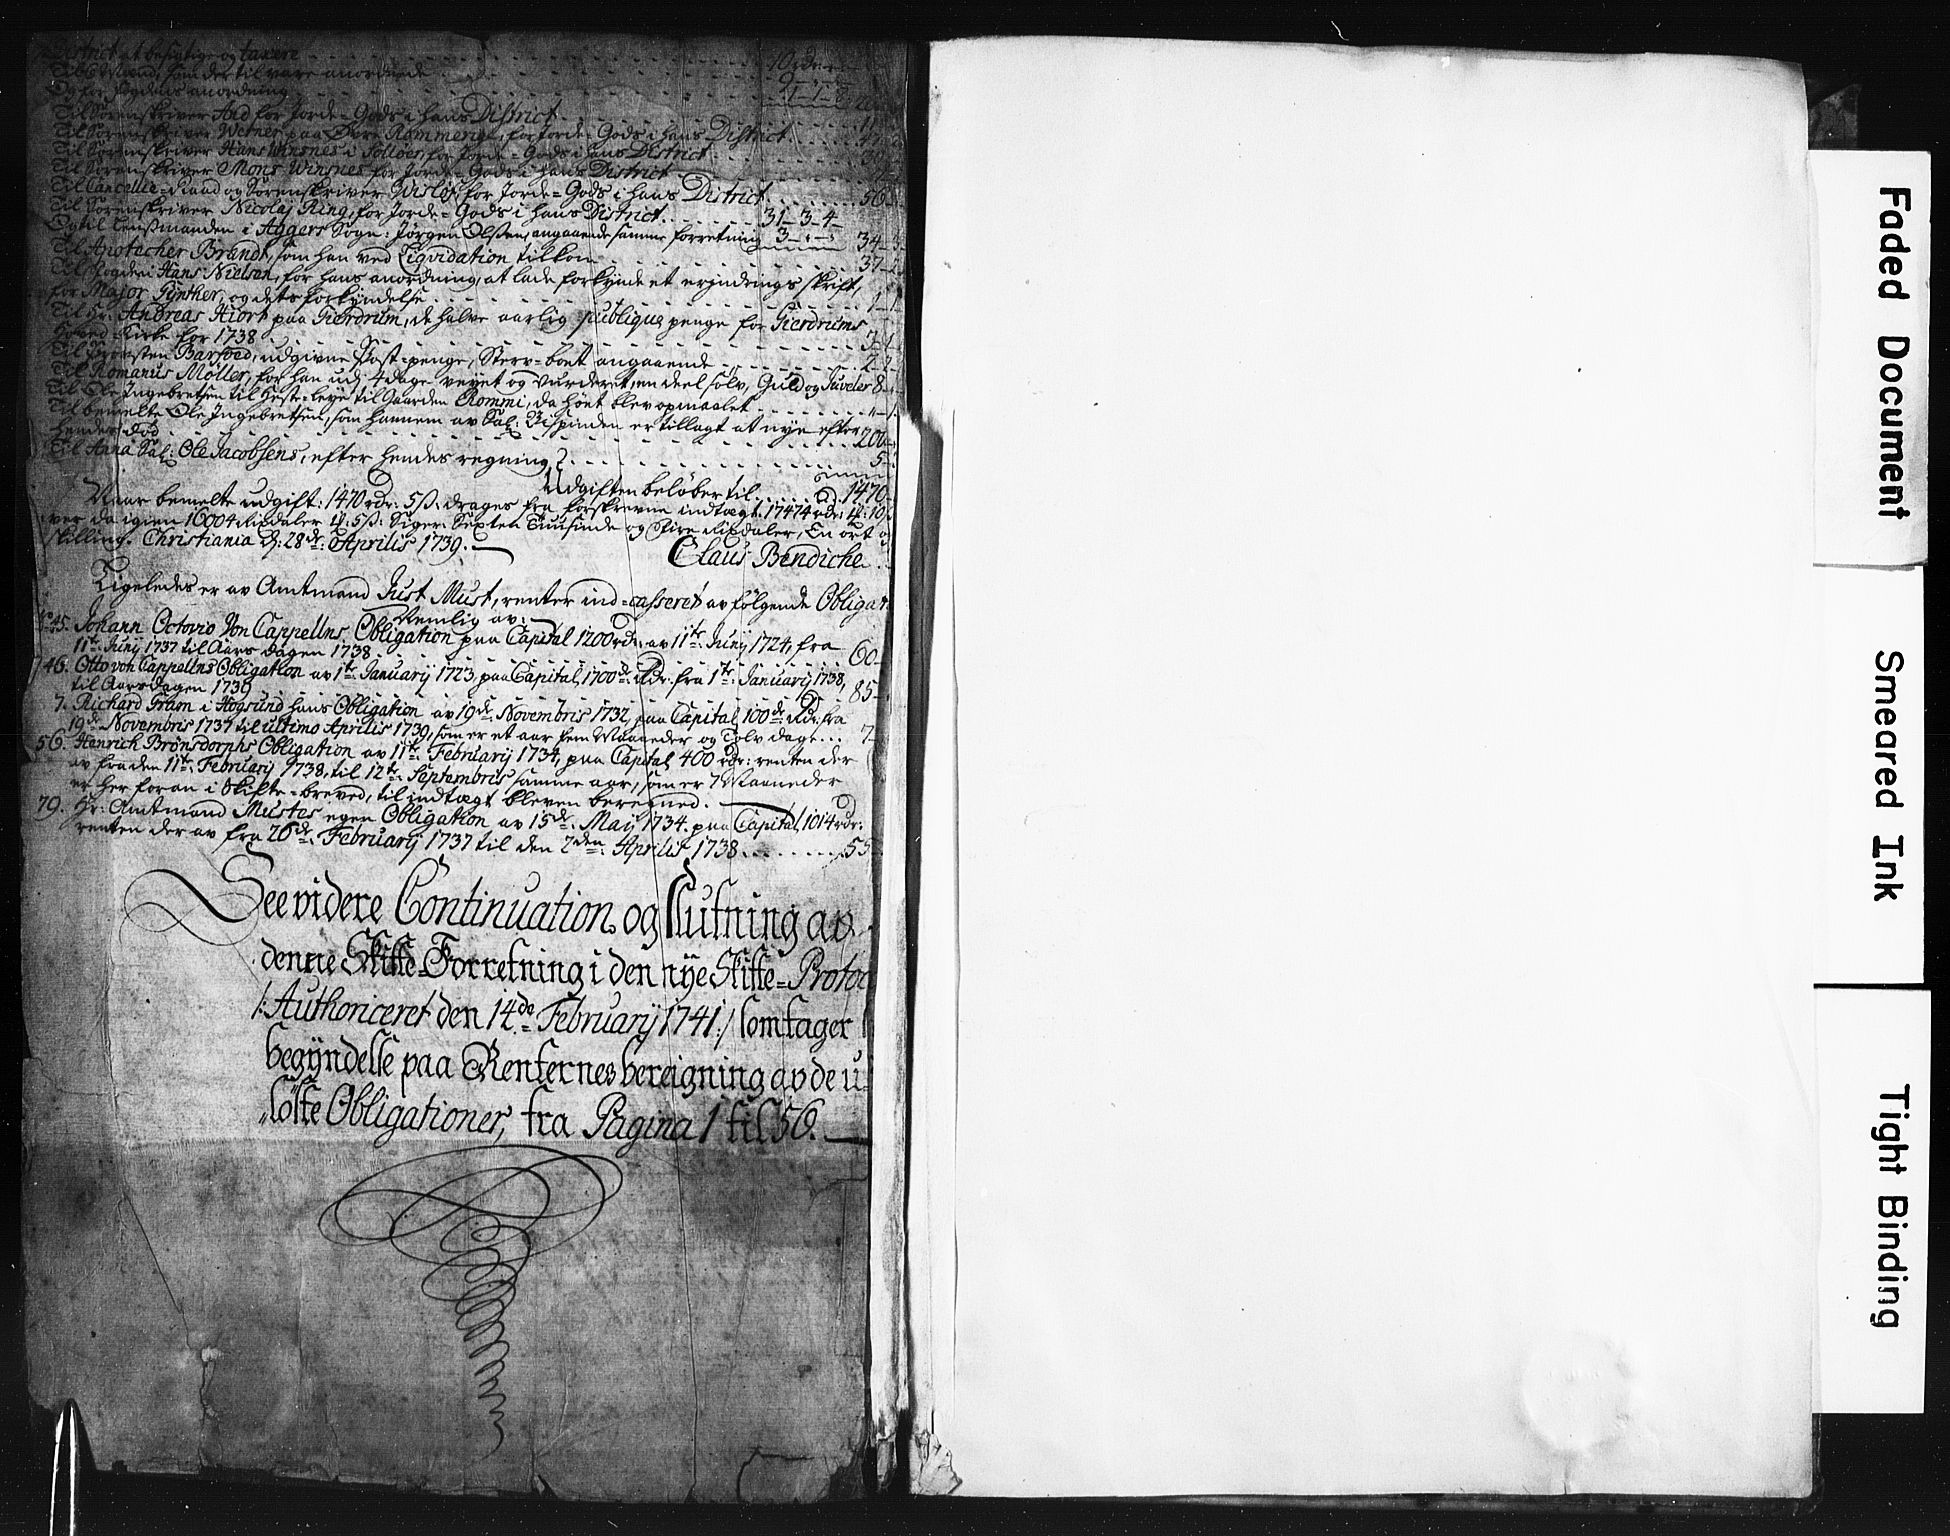 District at besigtige og taxere . . . 10 rdr:
Tid til Mænd, som der til vare anordnede
Og for fogdens anordning
Til Sorenskriver Aid for Jorde-Gods i hans District
Til Sorenskriver Werner paa Øvre Rommerige, for Jorde-Gods i hans District
Til Sorenskriver Hans Winsnes i Solløer, for Jorde-Gods i hans District
Til Sorenskriver Mons Winsnes for Jorde-Gods i hans District
Til Cancellie-Raad og Sorenskriver Wisløf for Jorde-Gods i hans District . . . 56
Til Sorenskriver Nicolaj Ring, for Jorde-Gods i hans District . . . 31-3-4
Og til Lensmanden i Aggers Sogn: Jørgen Olsen, angaaende samme forretning 3 . . . 34-3
Til Apotecher Brandt, som han ved Liqvidation tilkom . . . 37-2
Til fogden Hans Nielsen, for hans anordning, at lade forkynde et erindrings skrift,
for Major Gynther, og dets forkyndelse . . . 1-1
Til Hr: Andreas Hiort paa Gierdrum, de halve aarlig publique penge for Gierdrums
Hoved-Kirke for 1738 . . . 3-1
Til Torsten Barfoed, udgivne Post-penge, Sterv-boet angaaende . . . 2-2
Til Romanus Møller, for han udj 4 dage veyet og vurderet, en deel sølv, Guld og Juveler 8
Til Ole Ingebretsen til Heste-leye til Gaarden Rommi, da høet blev opmaalet
Til bemelte Ole Ingebretsen, som hannem av Sal: Bispinden er tillagt at nye efter
hendes død . . . 200
Til Anna Sal: Ole Jacobsens, efter hendes regning . . . 5
Udgiften beløber til . . . rd: 1470
Naar bemelte udgift: 1470 rdr: 5 ß: drages fra forskrevne indtægt: 17474 rdr: 1ß: 10
ver da igien 16004 Rixdaler 1ß: 5ß: Siger: Sexten Tuusinde og Fire Rixdaler, En ort og
skilling. Christiania d: 28de: Aprilis 1739.
Claus Bendiche
Ligeledes er av Amtmand Just Must, renter ind-casseret av følgende Obligat
Nemlig av:
No 45. Johann Octovio Von Cappellns Obligation paa Capital 1200 rdr: av 11te: Junij 1724, fra
11te: Junij 1737 til Aars dagen 1738 . . . 60
46. Otto von Cappellns Obligation av 1te: Januarij 1723, paa Capital 1700de: Rdr: fra 1te: Januarij 1738,
til Aarsdagen 1739 . . . 85
7. Richard Tram i Hogsund hans Obligation av 19de: Novembris 1732, paa Capital 100de Rdr: fra
19de: Novembris 1737 til ultimo Aprilis 1739, som er et aar fem Maaneder og Tolv dage . . . 7
56. Henrich Brønsdorphs Obligation av 11te: Februarij 1734, paa Capital 400 rdr: renten der
av fra den 11te: Februarij 1738, til 12te: Septembris samme aar, som er 7 Maaneder
er her foran i Skifte-breved, til indtægt bleven beregned.
79. Hr: Amtmand Mustes egen Obligation av 15de: Maij 1734. paa Capital 1014 rdr:
renten der av fra 26de: Februarij 1737 til den 2den: Aprilis 1738 . . . 55
See videre Continuation og slutning av
denne Skifte-Forretning i den nye Skifte-Protoc
/: Authoriceret den 14de Februarij 1741:/ som tager
begÿndelse paa Renternes bereigning av de u-
"løste Obligationer, fra Pagina 1 til 56.
Faded Document
Smeared Ink
Tight Binding